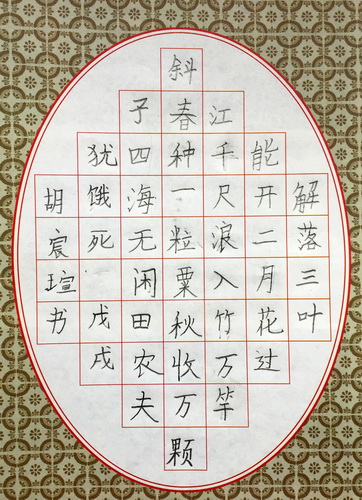 解落三叶
能开二月花过
江千尺浪入竹万竿
斜春种一粒粟秋收万颗
子四海无闲田农夫
犹饿死戊戌
胡宸瑄书